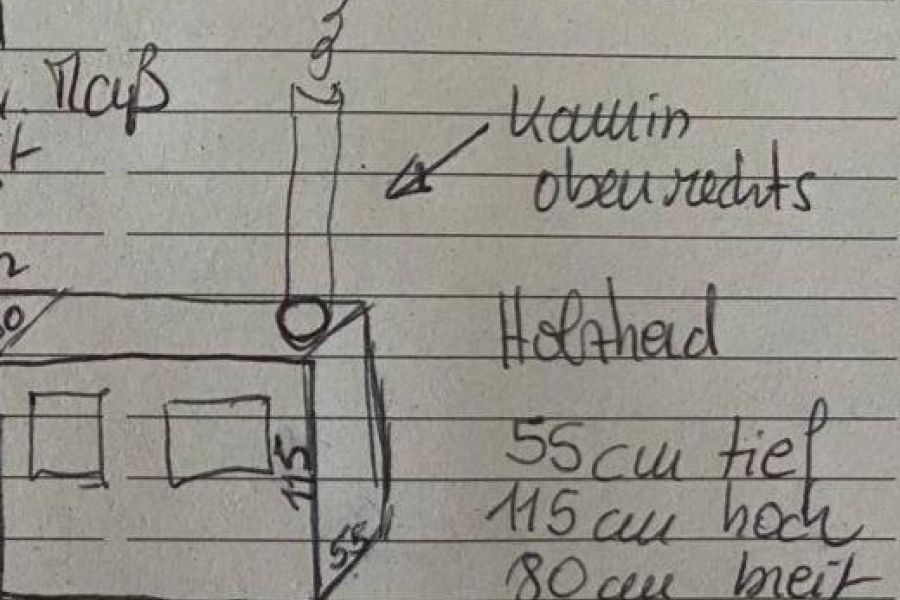 Maß
Kamin
oben rechts
Holzherd
55 cm tief
115
115 cm hoch
55
80 cm breit